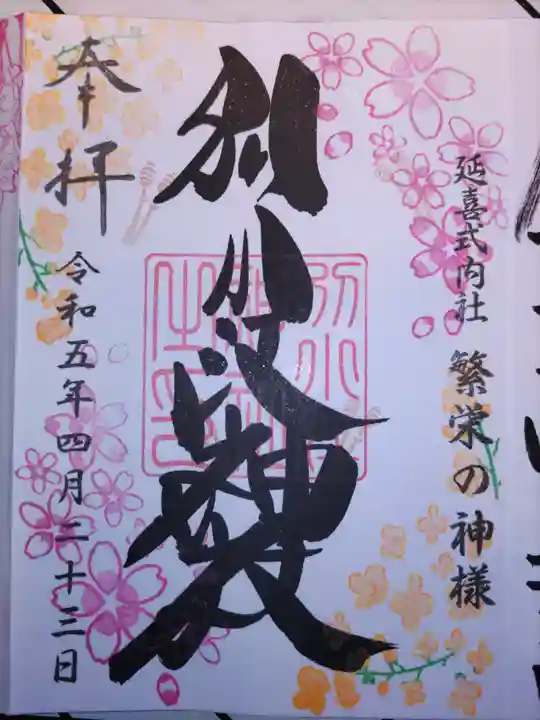 延喜式内社 繁栄の神様
別小江神社
奉拝
令和五年四月二十三日